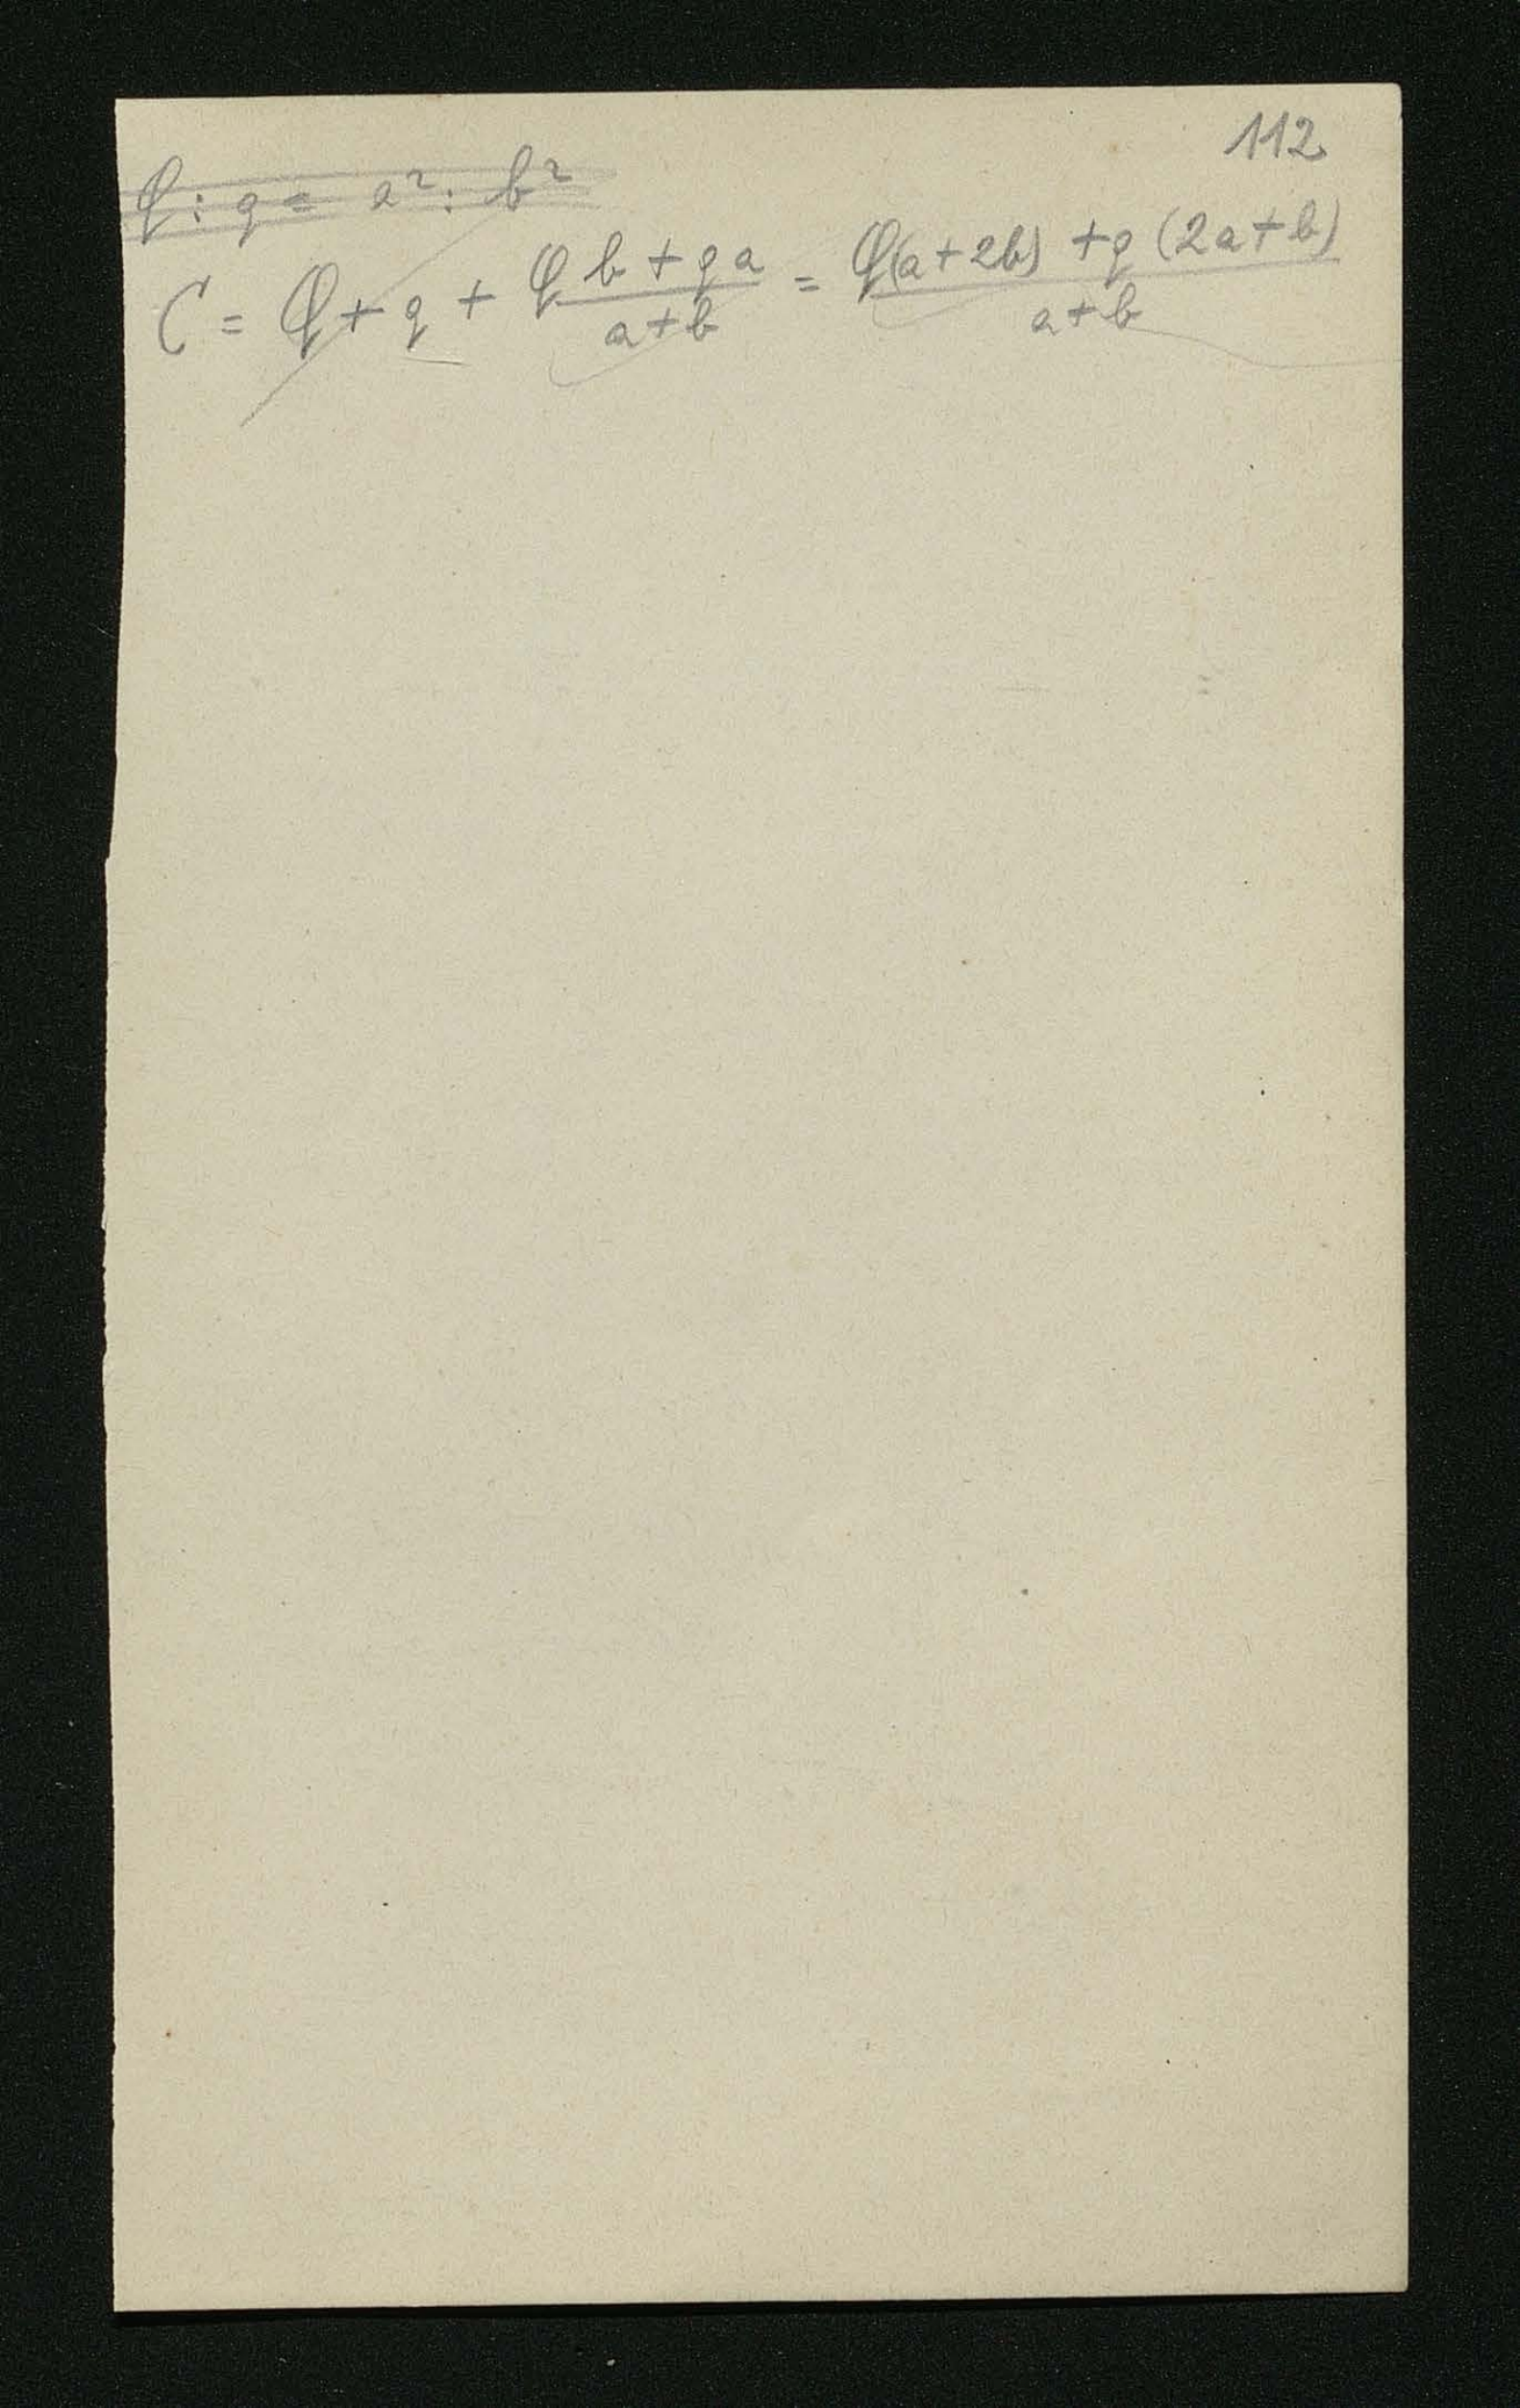 112
Q : q = a² : b²
C = Q + q + (Q b + q a)/(a + b) = (Q(a + 2b) + q (2a + b))/(a + b)